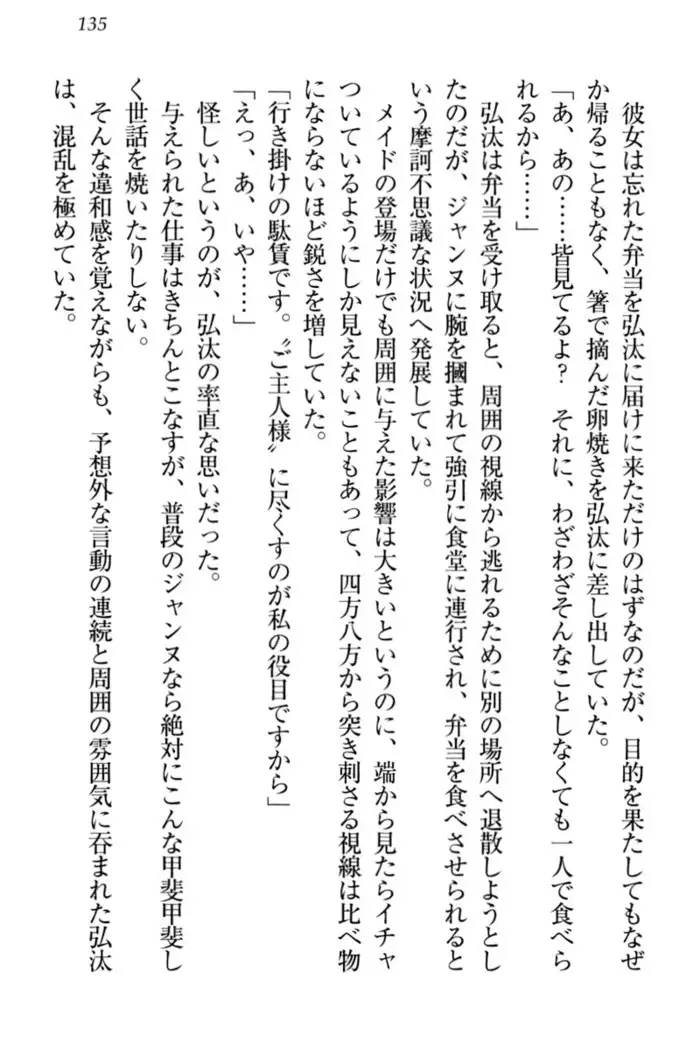 135
彼女は忘れた弁当を弘汰に届けに来ただけのはずなのだが、目的を果たしてもなぜ
か帰ることもなく、箸で摘んだ卵焼きを弘汰に差し出していた。
「あ、あの……皆見てるよ？　それに、わざわざそんなことしなくても一人で食べら
れるから……」
弘汰は弁当を受け取ると、周囲の視線から逃れるために別の場所へ退散しようとし
たのだが、ジャンヌに腕を摑まれて強引に食堂に連行され、弁当を食べさせられると
いう摩訶不思議な状況へ発展していた。
メイドの登場だけでも周囲に与えた影響は大きいというのに、端から見たらイチャ
ついているようにしか見えないこともあって、四方八方から突き刺さる視線は比べ物
にならないほど鋭さを増していた。
「行き掛けの駄賃です。〝ご主人様〟に尽くすのが私の役目ですから」
「えっ、あ、いや……」
怪しいというのが、弘汰の率直な思いだった。
与えられた仕事はきちんとこなすが、普段のジャンヌなら絶対にこんな甲斐甲斐し
く世話を焼いたりしない。
そんな違和感を覚えながらも、予想外な言動の連続と周囲の雰囲気に呑まれた弘汰
は、混乱を極めていた。